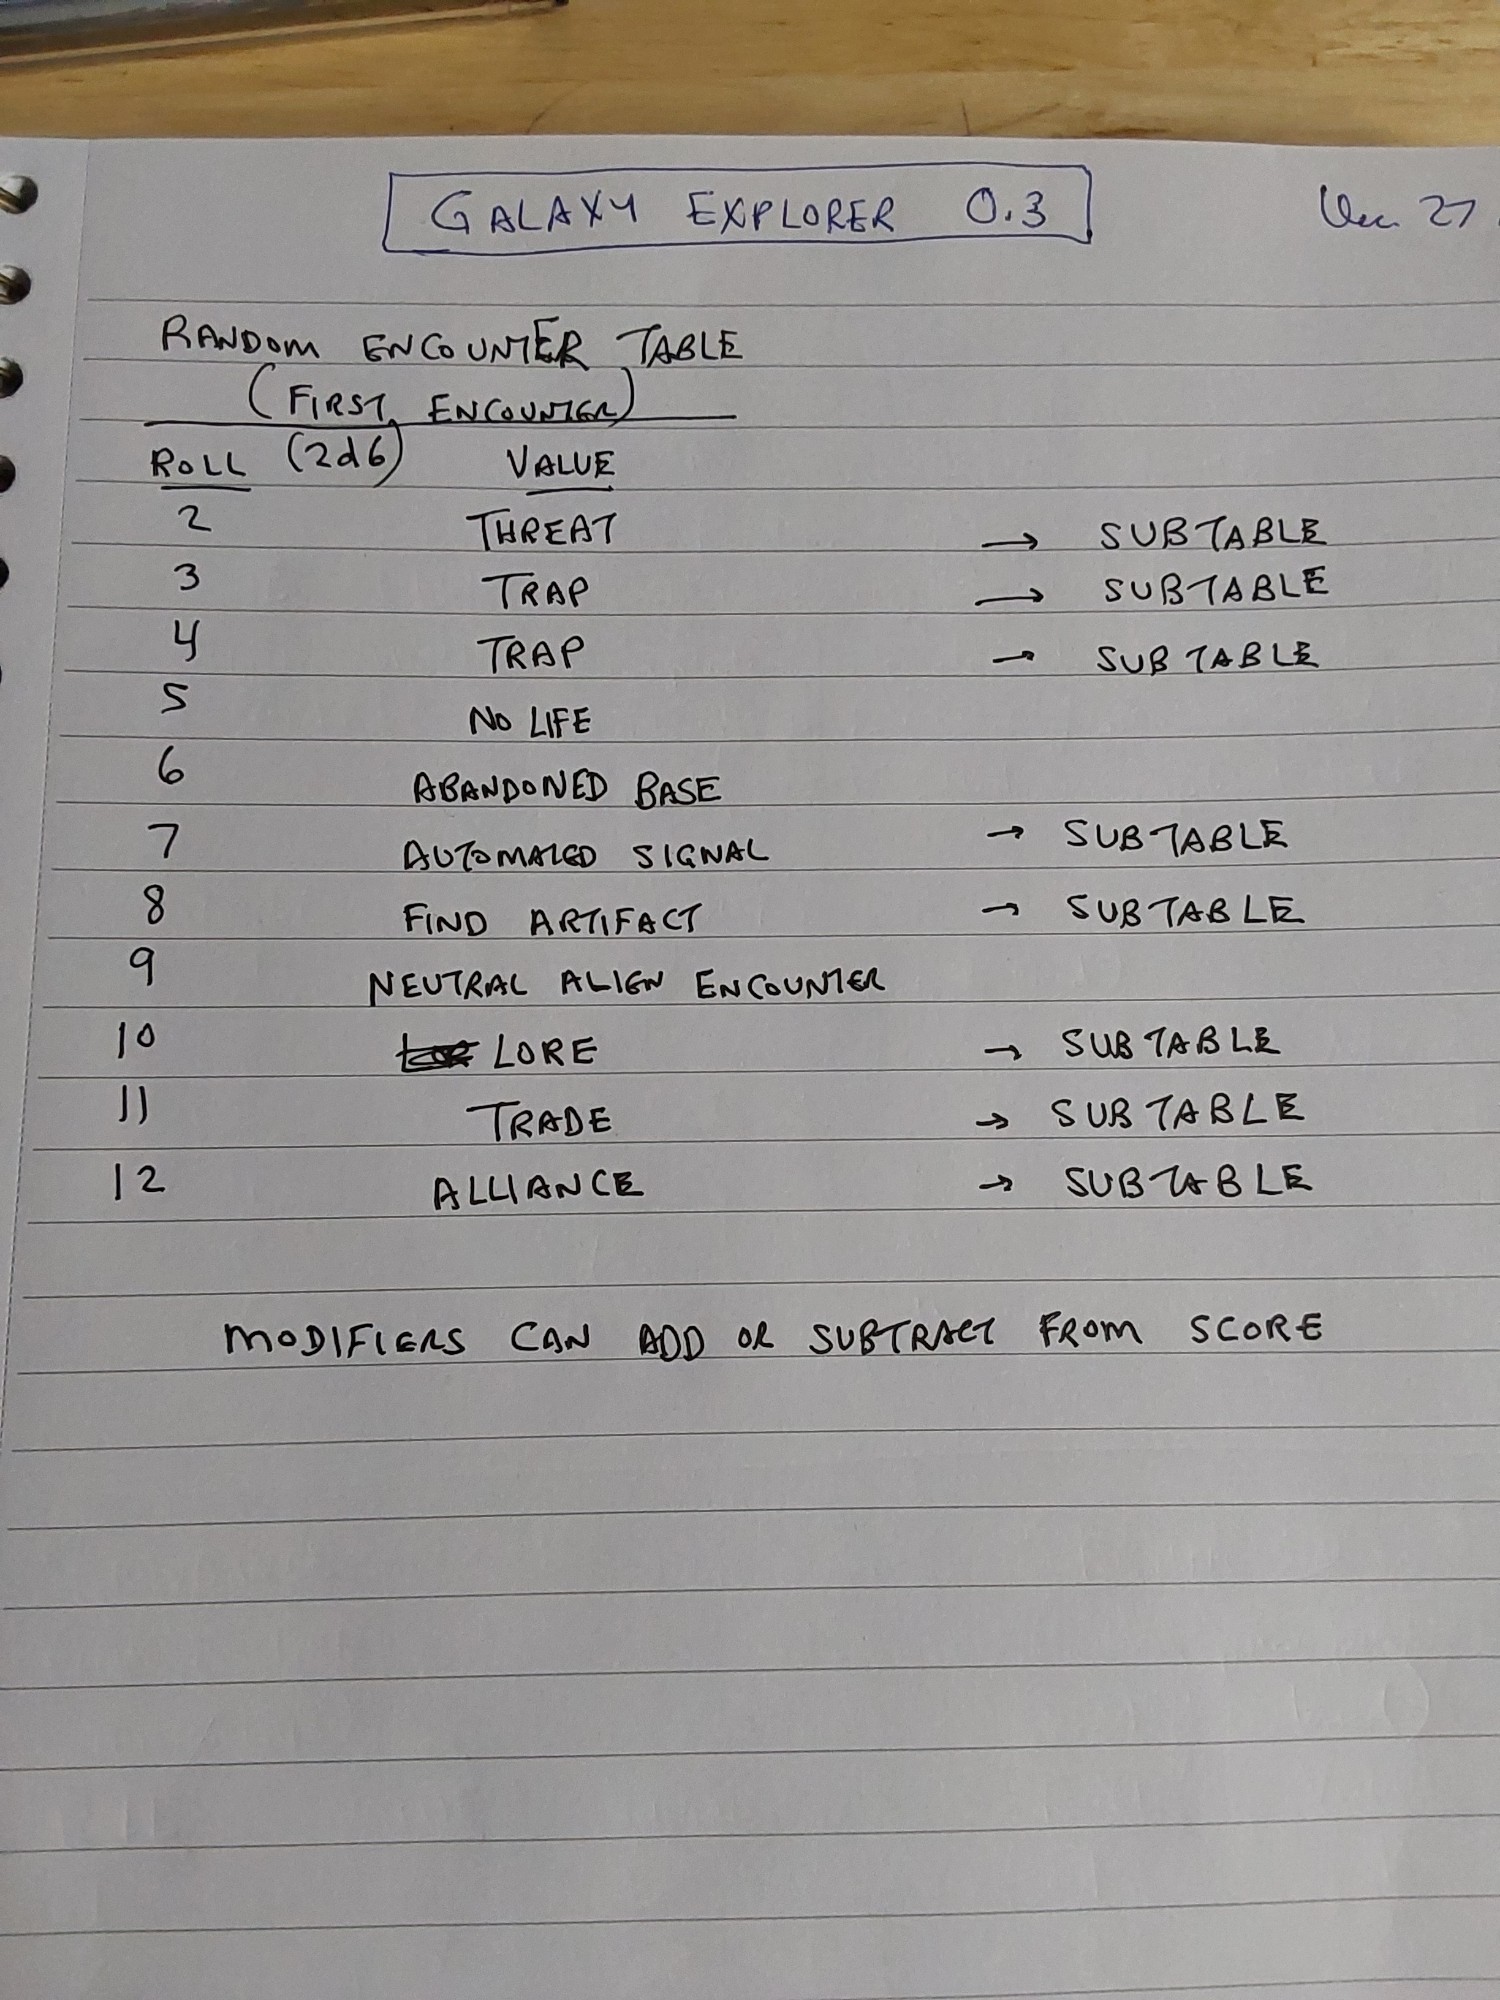 GALAXY EXPLORER 0.3
Dec 27
RANDOM ENCOUNTER TABLE
(FIRST ENCOUNTER)
ROLL (2d6) VALUE
2 THREAT → SUBTABLE
3 TRAP → SUBTABLE
4 TRAP → SUBTABLE
5 NO LIFE
6 ABANDONED BASE
7 AUTOMATED SIGNAL → SUBTABLE
8 FIND ARTIFACT → SUBTABLE
9 NEUTRAL ALIGN ENCOUNTER
10 LORE → SUBTABLE
11 TRADE → SUBTABLE
12 ALLIANCE → SUBTABLE
MODIFIERS CAN ADD OR SUBTRACT FROM SCORE